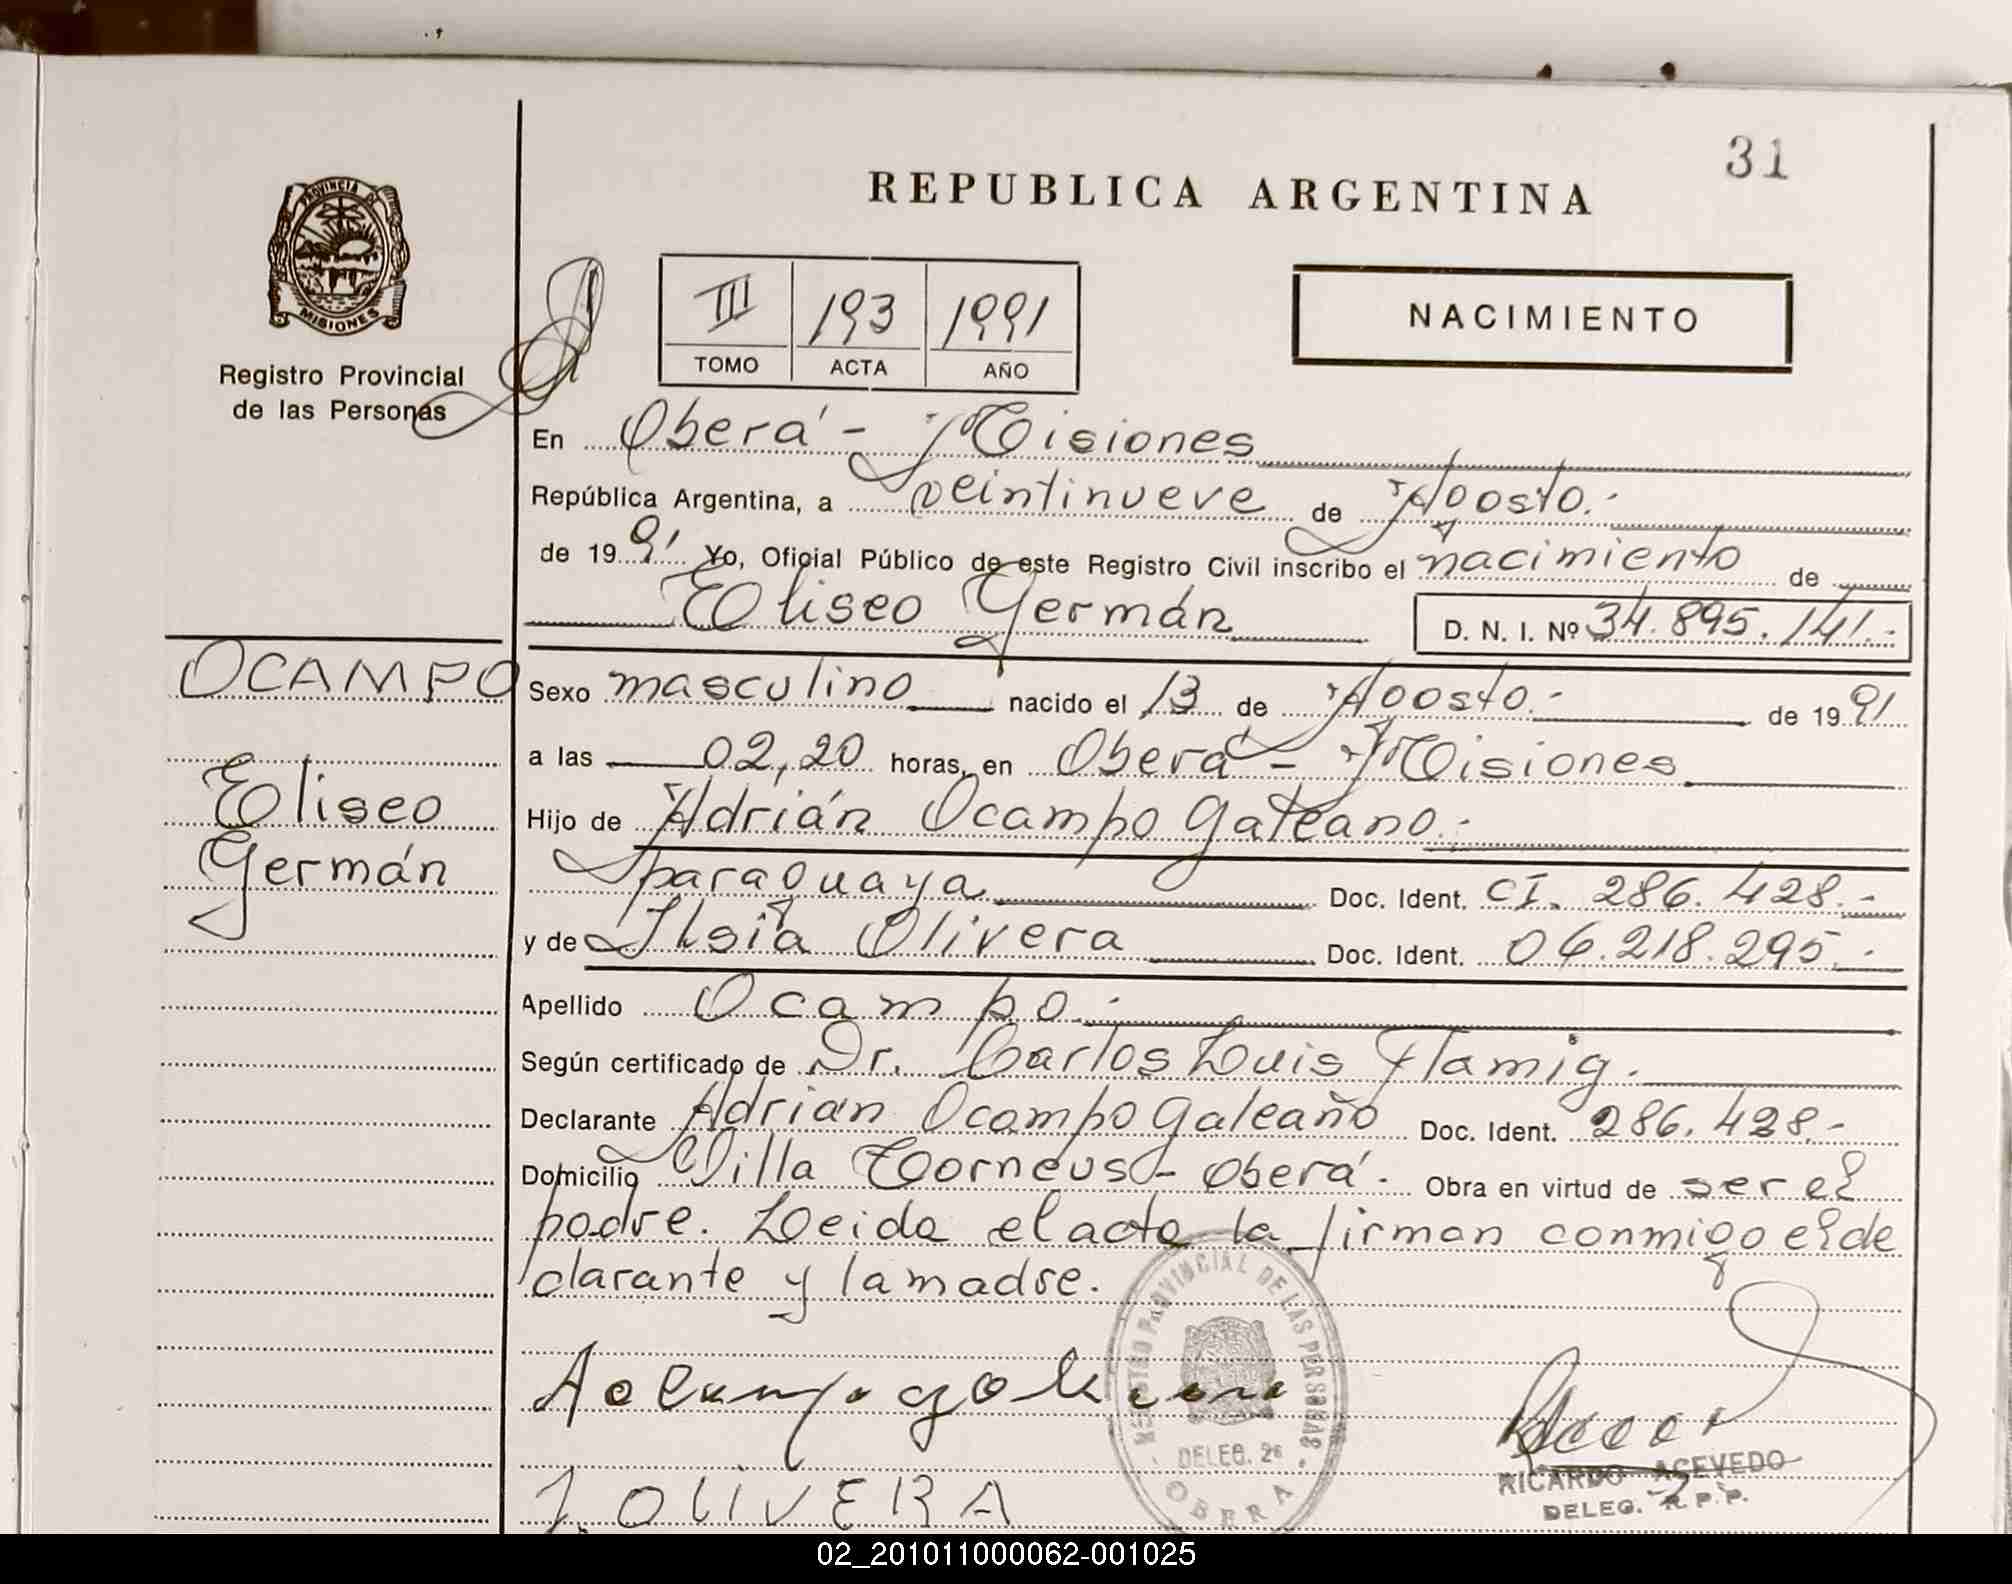 31
REPUBLICA ARGENTINA
PROVINCIA DE
MISIONES
Registro Provincial
de las Personas
III 193 1991
TOMO ACTA AÑO
NACIMIENTO
En Oberá - Misiones
República Argentina, a veintinueve de Agosto.-
de 1991 Yo, Oficial Público de este Registro Civil inscribo el nacimiento de
Eliseo Germán D. N. I. Nº 34.895.141.-
OCAMPO
Eliseo
Germán
Sexo masculino nacido el 13 de Agosto.- de 1991
a las 02,20 horas, en Oberá - Misiones
Hijo de Adrián Ocampo Galeano.-
paraguaya Doc. Ident. CI. 286.428.-
y de Ilsia Olivera Doc. Ident. 06.218.295.-
Apellido Ocampo.-
Según certificado de Dr. Carlos Luis Flamig.
Declarante Adrian Ocampo Galeano Doc. Ident. 286.428.-
Domicilio Villa Torneus - Oberá. Obra en virtud de ser el
padre. Leida el acta la firman conmigo el de
clarante y la madre.
REGISTRO PROVINCIAL DE LAS PERSONAS
DELEG. 26
OBERA
I. OLIVERA
RICARDO ACEVEDO
DELEG. R.P.P.
02_201011000062-001025